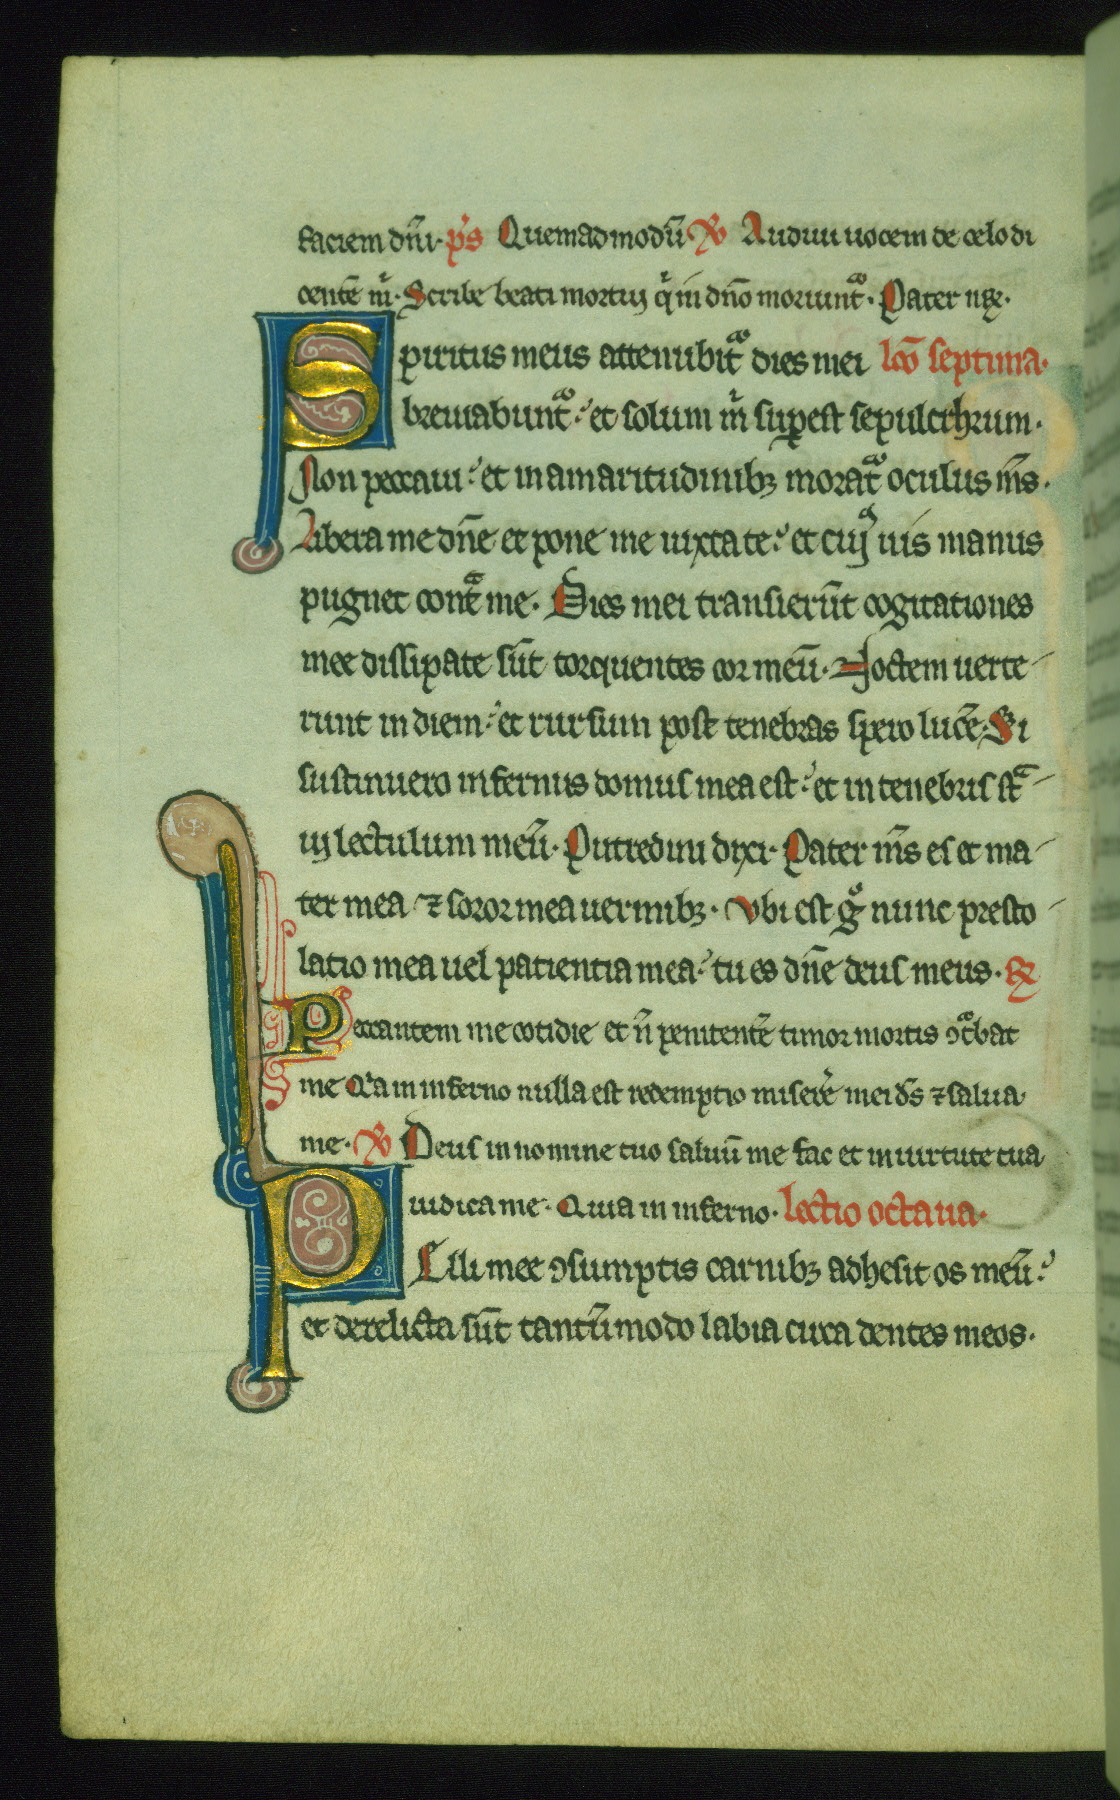 faciem dñi· p̃s Quemadmodũ ℣ Audiui uocem de celo di
centẽ m̃· Scribe beati mortuj q̃ in dño moriunt᷑· Pater nr̃·
Spiritus meus attenubit᷑ dies mei lc̃o septima·
breuiabunt᷑· et solum m̃ suꝑest sepulcrhum·
Non peccaui· et in amaritudinibꝫ morat᷑ oculus m̃s·
Libera me dñe et pone me iuxta te· et cuj᷑ uis manus
pugnet cont̃ me· Dies mei transierũt cogitationes
mee dissipate sũt torquentes cor meũ· Noctem uerte
runt in diem· et rursum post tenebras spero lucẽ· Si
sustinuero infernus domus mea est· et in tenebris st᷑
uj lectulum meũ· Putredini dixi· Pater m̃s es et ma
ter mea ⁊ soror mea uermibꝫ· Vbi est gͦ nunc presto
latio mea uel patientia mea· tu es dñe deus meus· ℟
Peccantem me cotidie et ñ penitentẽ timor mortis ꝯt᷑bat
me Q̃a in inferno nulla est redemptio miserẽ mei ds̃ ⁊ salua
me· ℣ Deus in nomine tuo saluũ me fac et in uirtute tua
iudica me· Quia in inferno· lectio octaua·
PElli mee ꝯsumptis carnibꝫ adhesit os meũ·
et derelicta sũt tantũmodo labia circa dentes meos·